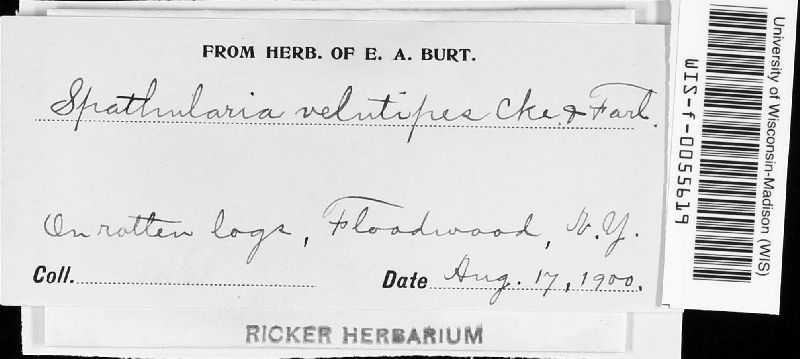 FROM HERB. OF E. A. BURT.
Spathularia velutipes Cke. & Farl.
On rotten logs, Floodwood, N.Y.
Coll.
Date Aug. 17, 1900.
RICKER HERBARIUM
University of Wisconsin-Madison (WIS)
WIS-f-0055619